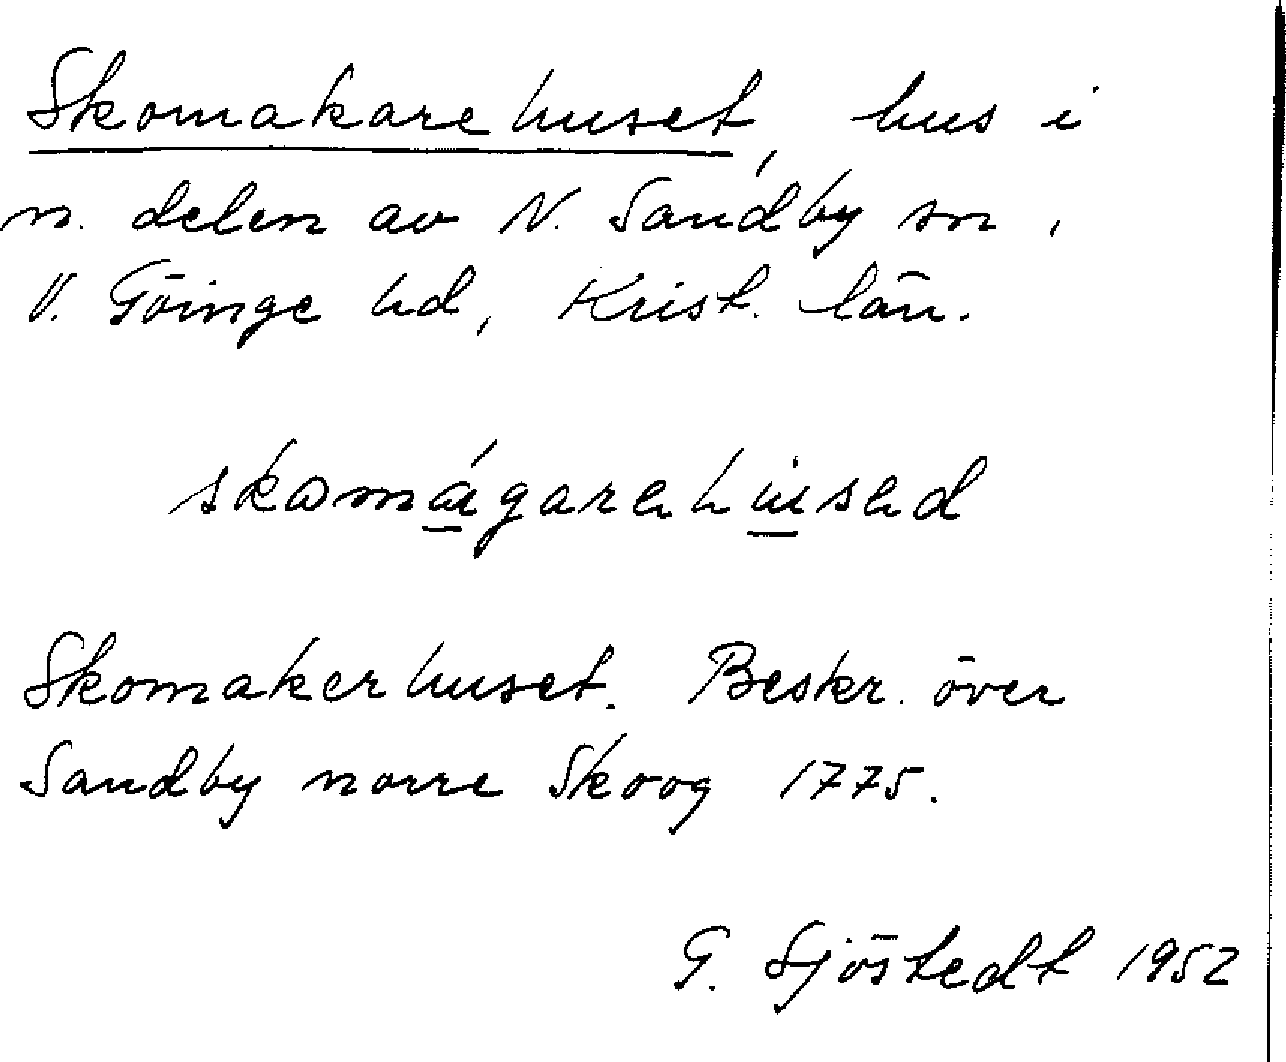 Skomakarehuset, hus i
n. delen av N. Sandby sn,
V. Göinge hd, Krist. län.
skomágarehùsed
Skomakerhuset. Beskr. över
Sandby norre Skoog 1775.
G. Sjöstedt 1952